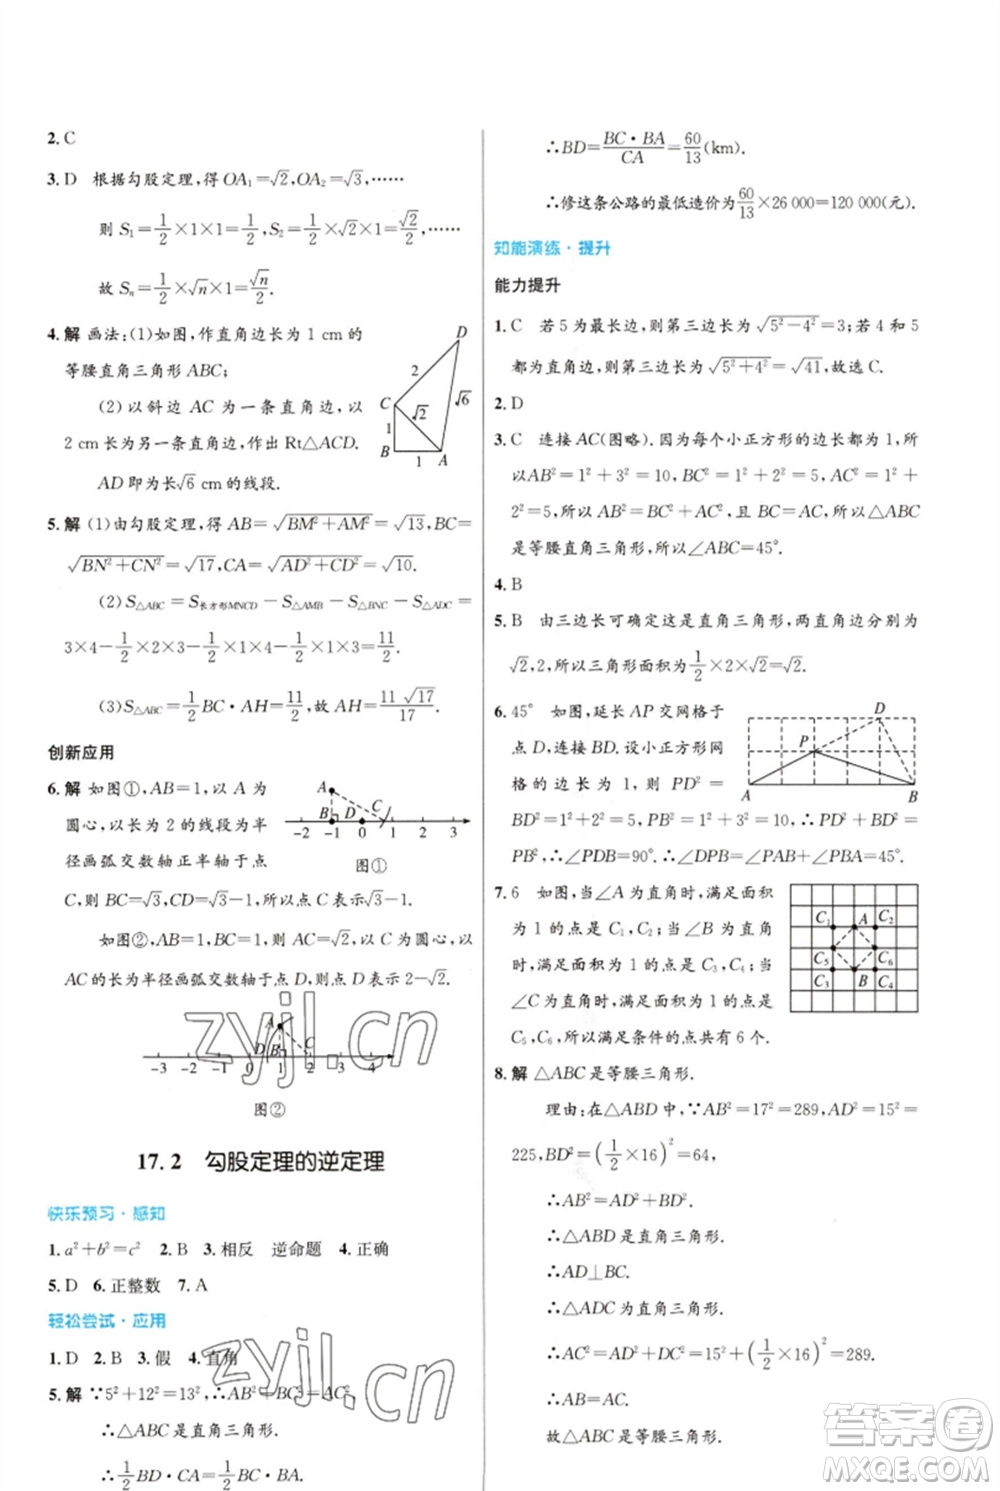 2. C
3. D 根据勾股定理,得OA₁=√2,OA₂=√3,……
则 S₁=1/2×1×1=1/2,S₂=1/2×√2×1=√2/2,……
故 Sₙ=1/2×√n×1=√n/2.
4. 解 画法:(1)如图,作直角边长为 1 cm 的
等腰直角三角形 ABC;
(2) 以斜边 AC 为一条直角边,以
2 cm长为另一条直角边,作出 Rt△ACD.
AD 即为长√6 cm的线段.
D
2
C
√2
√6
1
B
1
A
5. 解 (1)由勾股定理,得 AB=√(BM²+AM²)=√13,BC=
√(BN²+CN²)=√17,CA=√(AD²+CD²)=√10.
(2) S△ABC=S长方形MNCD−S△AMB−S△BNC−S△ACD=
3×4−1/2×2×3−1/2×1×4−1/2×1×3=11/2.
(3)S△ABC=1/2BC·AH=11/2,故 AH=11√17/17.
创新应用
6. 解 如图①,AB=1,以 A 为
圆心,以长为 2 的线段为半
径画弧交数轴正半轴于点
C,则 BC=√3,CD=√3−1.
A
B D C
−1 0 1 2 3
图①
如图②,AB=1,BC=1,则 AC=√2,以 C 为圆心,以
AC的长为半径画弧交数轴于点 D,则 D 表示 2−√2.
A
D B C
−3 −2 −1 0 1 2 3 4
图②
17.2 勾股定理的逆定理
快乐预习·感知
1. a²+b²=c² 2. B 3. 相反 逆命题 4. 正确
5. D 6. 正整数 7. A
轻松尝试·应用
1. D 2. B 3. 假 4. 直角
5. 解 ∵5²+12²=13²,∴AB²+BC²=AC².
∴△ABC 为直角三角形.
∴1/2BD·CA=1/2BC·BA.
∴BD=BC·BA/CA=60/13(km).
∴修这条公路的最低造价为60/13×26 000=120 000(元).
知能演练·提升
能力提升
1. C 若 5 为最长边,则第三边长为√(5²−4²)=3;若 4 和 5
都为直角边,则第三边长为√(5²+4²)=√41,故选 C.
2. D
3. C 连接 AC(图略).因为每个小正方形的边长为 1,所
以AB²=1²+3²=10,BC²=1²+2²=5,AC²=1²+
2²=5,所以 AB²=BC²+AC²,且 BC=AC,所以△ABC
是等腰直角三角形,所以∠ABC=45°.
4. B
5. B 由三边长可确定这是直角三角形,两直角边分别为
√2,2,所以三角形面积为1/2×2×√2=√2.
6. 45° 如图,延长 AP 交网格于
点 D,连接 BD.设小正方形网
格的边长为 1,则 PD²=
BD²=5,PB²=10,∴PD²+BD²=
PB²,∴∠PDB=90°.∴∠DPB=∠PBD=45°.
D
P
A
B
7. 6 如图,当∠A 为直角时,满足面积
为 1 的点是 C₁,C₂;当∠B 为直角
时,满足面积为 1 的点是 C₃,C₄;当
∠C 为直角时,满足面积为 1 的点是
C₅,C₆,所以满足条件的点共有 6 个.
C₁ A C₂
C₅ C₆
C₃ B C₄
8. 解 △ABC 是等腰三角形.
理由:在△ABD 中,∵AB²=17²=289,AD²=15²=
225,BD²=(1/2×16)²=64,
∴AB²=AD²+BD².
∴△ABD 为直角三角形.
∴AD⊥BC.
∴△ADC 为直角三角形.
∴AC²=AD²+DC²=15²+(1/2×16)²=289.
∴AC=17.∴AC=AB.
故△ABC 是等腰三角形.
zyjl.cn
zyjl.cn
答案卷
MXQE.COM